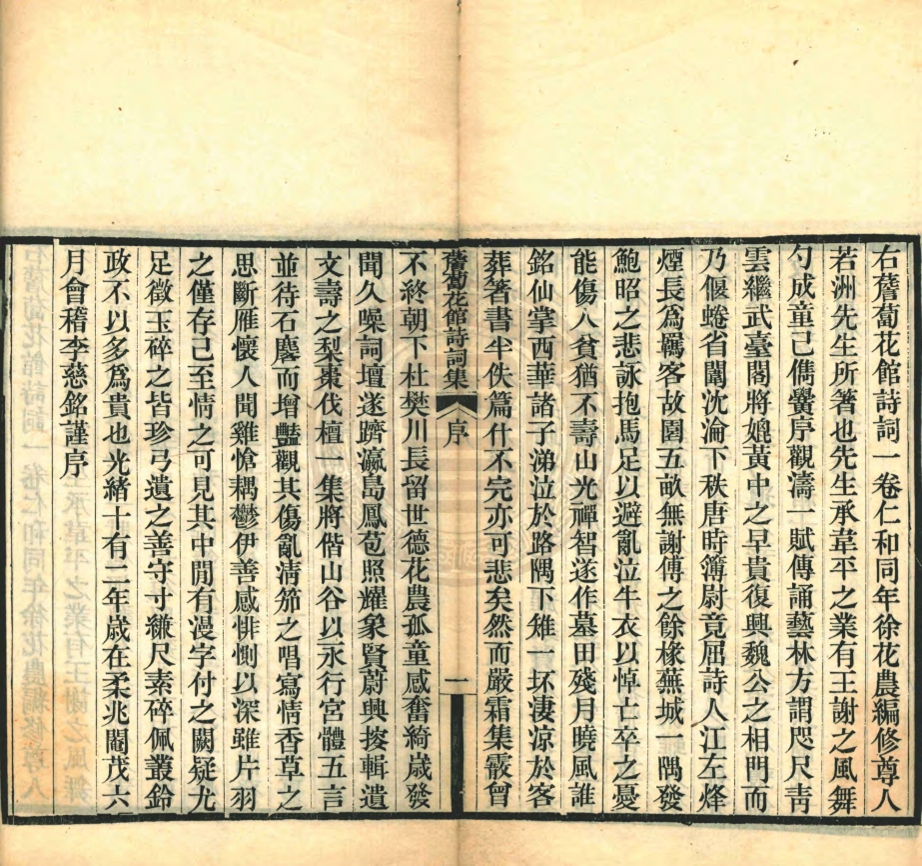 右薝蔔花館詩詞一卷仁和同年徐花農編修尊人
若洲先生所箸也先生承韋平之業有王謝之風舞
勺成童已儁黌序觀濤一賦傳誦藝林方謂咫尺靑
雲繼武臺閣將媲黃中之早貴復興魏公之相門而
乃偃蜷省闈沈淪下秩唐時簿尉竟屈詩人江左烽
煙長爲羈客故園五畝無謝傅之餘椽蕪城一隅發
鮑昭之悲詠抱馬足以避亂泣牛衣以悼亡卒之憂
能傷人貧猶不壽山光禪智遂作墓田殘月曉風誰
銘仙掌西華諸子涕泣於路隅下雉一坏淒凉於客
葬箸書半佚篇什不完亦可悲矣然而嚴霜集霰曾
薝蔔花館詩詞集 序 一
不終朝下杜樊川長留世德花農孤童感奮綺歲發
聞久噪詞壇遂躋瀛島鳳苞照耀象賢蔚興搜輯遺
文壽之梨棗伐檀一集將偕山谷以永行宮體五言
並待石麐而增豔觀其傷亂淸笳之唱寫情香草之
思斷雁懷人聞雞愴耦鬱伊善感悱惻以深雖片羽
之僅存已至情之可見其中閒有漫字付之闕疑尤
足徵玉碎之皆珍弓遺之善守寸縑尺素碎佩叢鈴
政不以多爲貴也光緒十有二年歲在柔兆閹茂六
月會稽李慈銘謹序